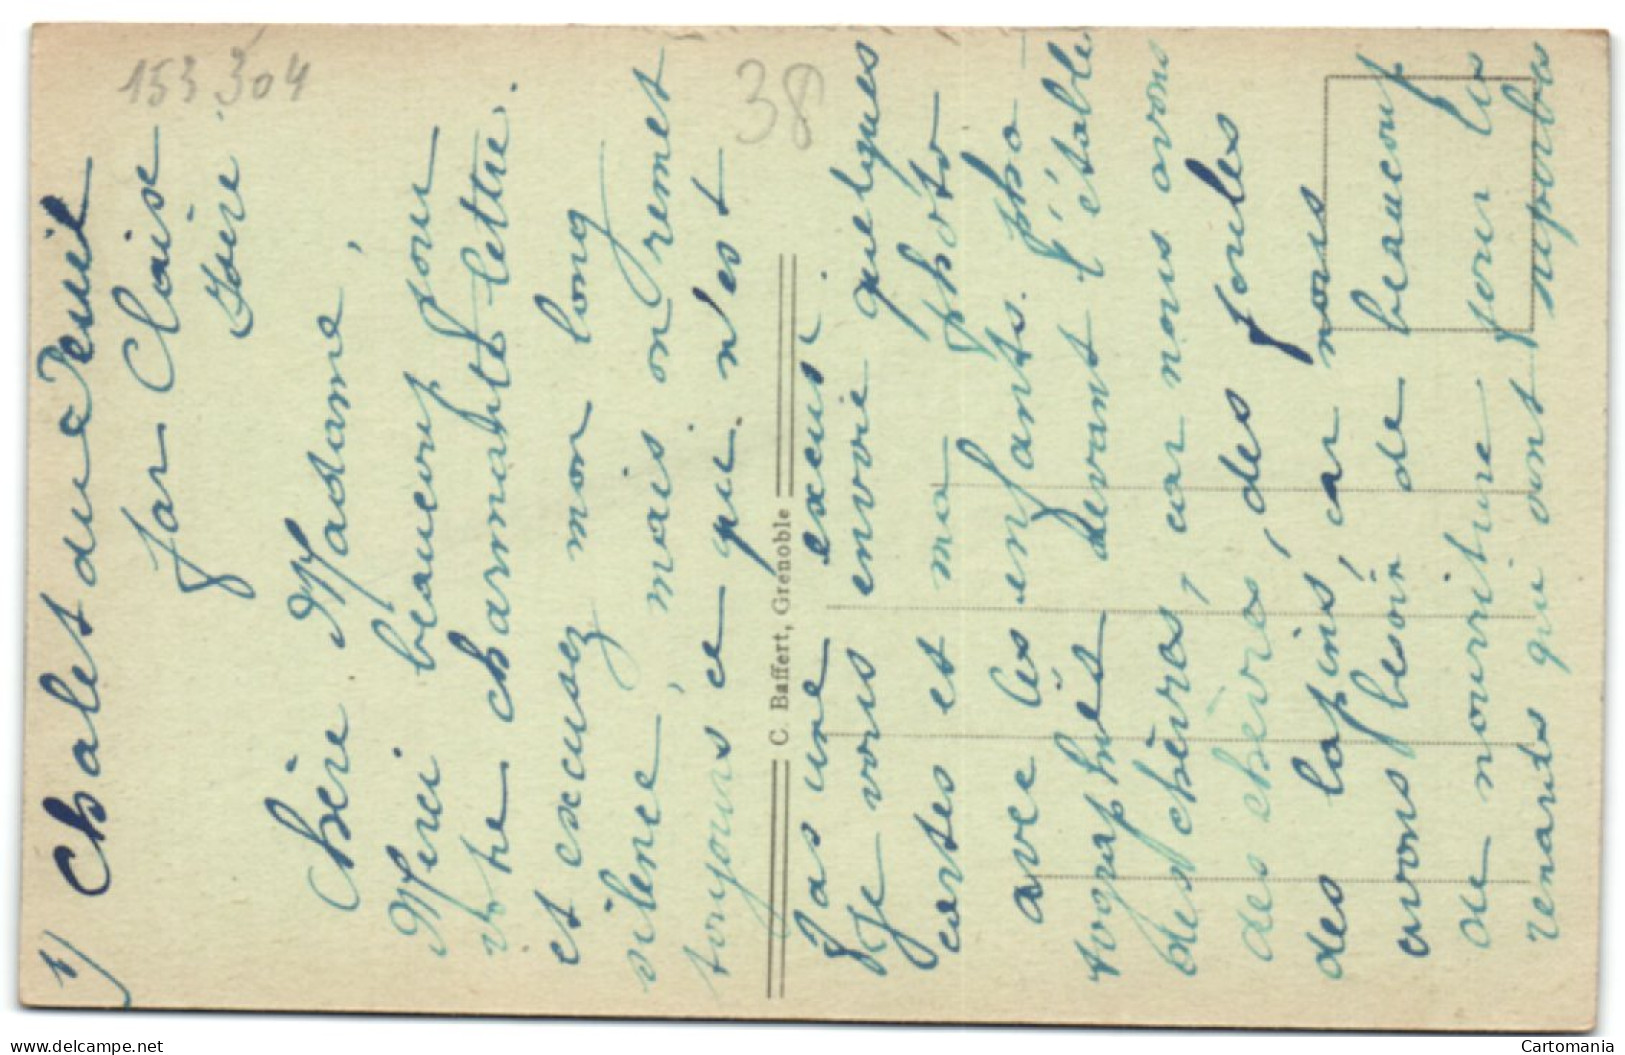 1) Chalet du Peuil
par Claix
Isère
Chère Madame,
Merci beaucoup pour
votre charmante lettre.
et excusez mon long
silence, mais on remet
toujours ce qui n'est
pas une excuse.
Je vous envoie quelques
cartes et ma photo
avec les enfants. pho-
tographiés devant l'étable
des chèvres, car nous avons
des chèvres, des poules
des lapins, car nous
avons besoin de beaucoup
de nourriture pour les
renards qui sont
C. Baffert, Grenoble
153 304
38
delcampe.net
Cartomania